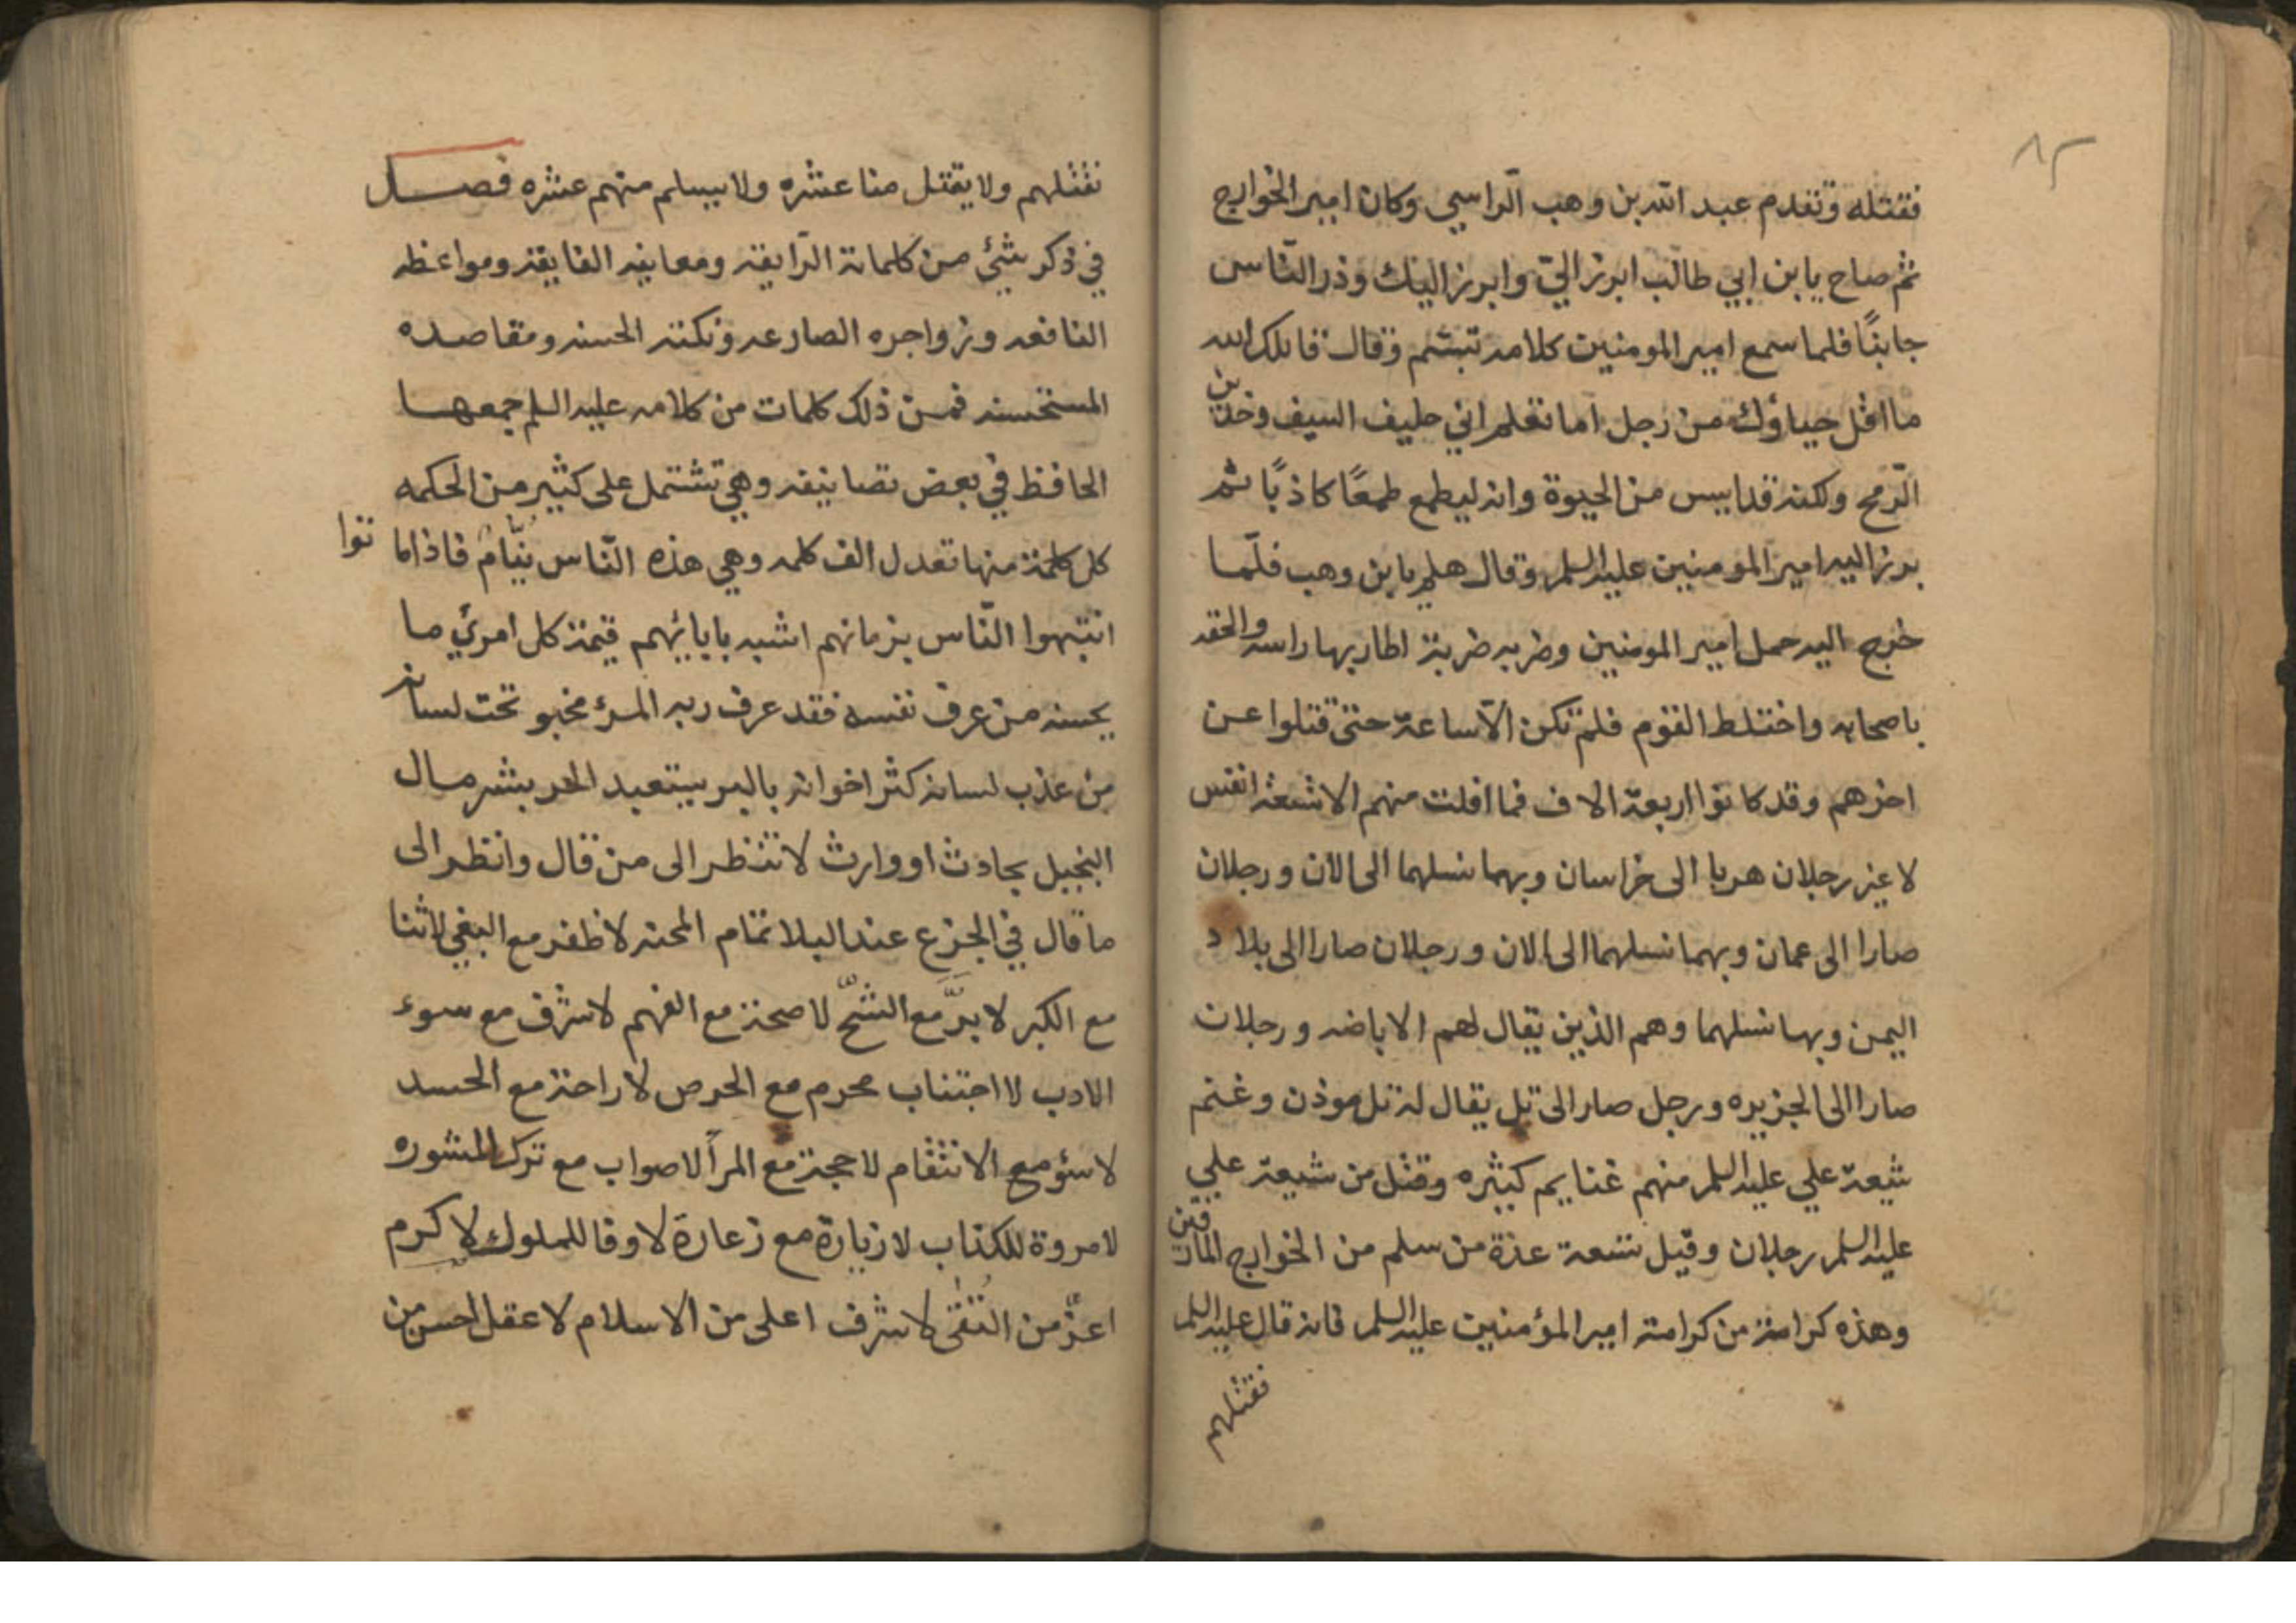 ٨٢
فقتله وتقدم عبد الله بن وهب الراسبي وكان امير الخوارج
ثم صاح يا بن ابي طالب ابرز اليّ وابرز اليك وذر الناس
جانبًا فلما سمع امير المومنين كلامه تبسم وقال قاتلك الله
ما اقل حياؤك من رجل اما تعلم اني حليف السيف وخدين
الرّمح ولكنه قد ايس من الحيوة وانه ليطمع طمعًا كاذبًا ثم
برز اليه امير المومنين عليه السلم وقال هلم يا بن وهب فلمّا
خرج اليه حمل امير المومنين وضربه ضربة اطار بها راسه والحقه
باصحابه واختلط القوم فلم تكن الّا ساعة حتى قتلوا عن
اخرهم وقد كانوا اربعة الاف فما افلت منهم الا تسعة انفس
لا غير رجلان هربا الى خراسان وبهما نسلهما الى الان ورجلان
صارا الى عمان وبهما نسلهما الى الان ورجلان صارا الى بلاد
اليمن وبها نسلهما وهم الذين يقال لهم الاباضه ورجلان
صارا الى الجزيره ورجل صار الى تل يقال له تل موذن وغنم
شيعة علي عليه السلم منهم غنايم كثيره وقتل من شيعة علي
عليه السلم رجلان وقيل تسعة عدة من سلم من الخوارج المارقين
وهذه كرامة من كرامته امير المؤمنين عليه السلم فانه قال عليه السلم
فقتلهم
نقتلهم ولا يقتل منا عشره ولا يسلم منهم عشره فصل
في ذكر شئ من كلماته الرّايقه ومعانيه الفايقه ومواعظه
النافعه وزواجره الصادعه ونكته الحسنه ومقاصده
المستحسنه فمن ذلك كلمات من كلامه عليه السلم جمعها
الحافظ في بعض تصانيفه وهي تشتمل على كثير من الحكمه
كل كلمة منها تعدل الف كلمه وهي هذه النّاس نيّامٌ فاذا ماتوا
انتبهوا النّاس بزمانهم اشبه بابائهم قيمة كل امرئ ما
يحسنه من عرف نفسه فقد عرف ربه المرؤ مخبو تحت لسانه
من عذب لسانه كثر اخوانه بالبر يستعبد الحر بشر مال
البخيل بحادث او وارث لا تنظر الى من قال وانظر الى
ما قال في الجزع عند البلا تمام المحنه لا ظفر مع البغي لا ثنا
مع الكبر لا برّ مع الشّح لا صحة مع الفهم لا شرف مع سوء
الادب لا اجتناب محرم مع الحرص لا راحة مع الحسد
لا سؤ مع الانتقام لا حجة مع المرآ لا صواب مع ترك المشوره
لا مروة للكذاب لا زيارة مع زعارة لا وفا للملوك لا كرم
اعزّ من التُقى لا شرف اعلى من الاسلام لا عقل احسن من